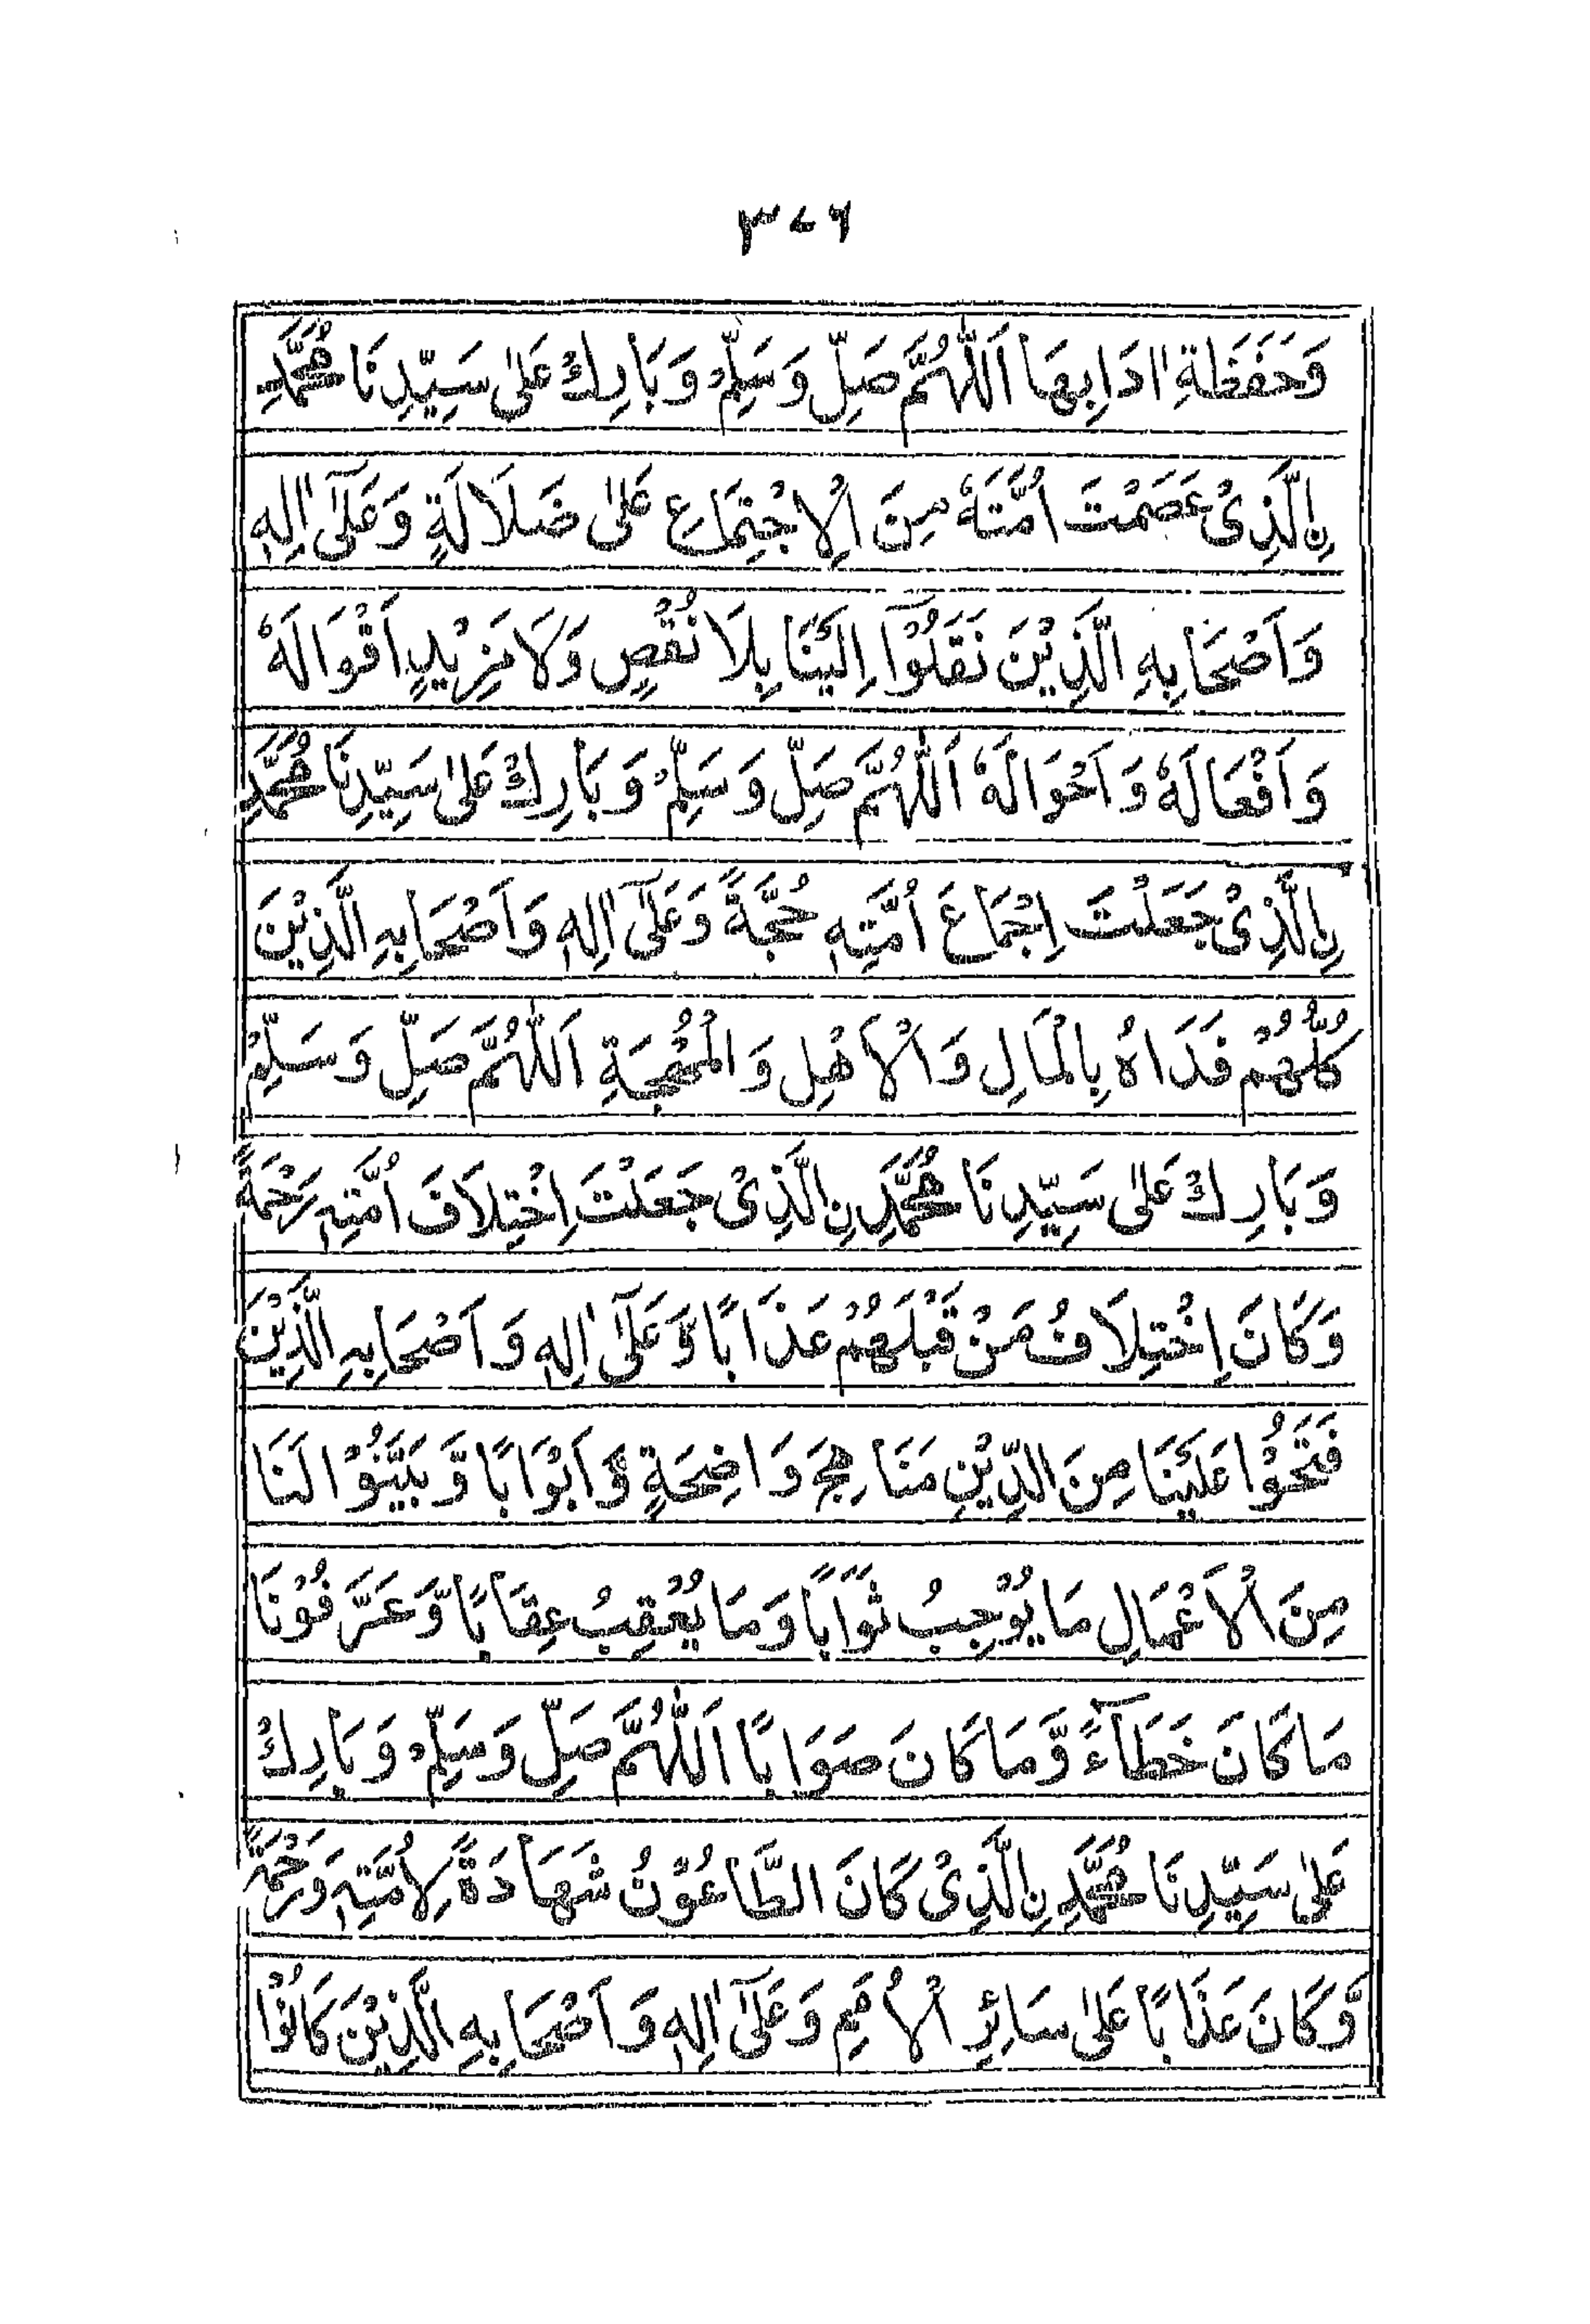 ٣٧٦
وَحَفَظَةِ اٰدَابِهَا اَللّٰهُمَّ صَلِّ وَسَلِّمْ وَبَارِكْ عَلٰى سَيِّدِنَا مُحَمَّدِ
نِ الَّذِىْ عَصَمْتَ اُمَّتَهٗ مِنَ الْاِجْتِمَاعِ عَلٰى ضَلَالَةٍ وَعَلٰٓى اٰلِهٖ
وَاَصْحَابِهِ الَّذِيْنَ نَقَلُوْٓا اِلَيْنَا بِلَا نُقْصٍ وَلَا مَزِيْدٍ اَقْوَالَهٗ
وَاَفْعَالَهٗ وَاَحْوَالَهٗ اَللّٰهُمَّ صَلِّ وَسَلِّمْ وَبَارِكْ عَلٰى سَيِّدِنَا مُحَمَّدِ
نِ الَّذِىْ جَعَلْتَ اِجْمَاعَ اُمَّتِهٖ حُجَّةً وَعَلٰٓى اٰلِهٖ وَاَصْحَابِهِ الَّذِيْنَ
كُلُّهُمْ فَدَاهُ بِالْمَالِ وَالْاَهْلِ وَالْمُهْجَةِ اَللّٰهُمَّ صَلِّ وَسَلِّمْ
وَبَارِكْ عَلٰى سَيِّدِنَا مُحَمَّدِ نِ الَّذِىْ جَعَلْتَ اِخْتِلَافَ اُمَّتِهٖ رَحْمَةً
وَكَانَ اِخْتِلَافُ مَنْ قَبْلَهُمْ عَذَابًا وَّعَلٰٓى اٰلِهٖ وَاَصْحَابِهِ الَّذِيْنَ
فَتَحُوْا عَلَيْنَا مِنَ الدِّيْنِ مَنَاهِجَ وَاضِحَةٍ وَّاَبْوَابًا وَّبَيَّنُوْا لَنَا
مِنَ الْاَعْمَالِ مَا يُوْجِبُ ثَوَابًا وَمَا يُعْقِبُ عِقَابًا وَّعَرَّفُوْنَا
مَا كَانَ خَطَآءً وَّمَا كَانَ صَوَابًا اَللّٰهُمَّ صَلِّ وَسَلِّمْ وَبَارِكْ
عَلٰى سَيِّدِنَا مُحَمَّدِ نِ الَّذِىْ كَانَ الطَّاعُوْنُ شَهَادَةً لِاُمَّتِهٖ وَرَحْمَةً
وَّكَانَ عَذَابًا عَلٰى سَائِرِ الْاُمَمِ وَعَلٰٓى اٰلِهٖ وَاَصْحَابِهِ الَّذِيْنَ كَانُوْا